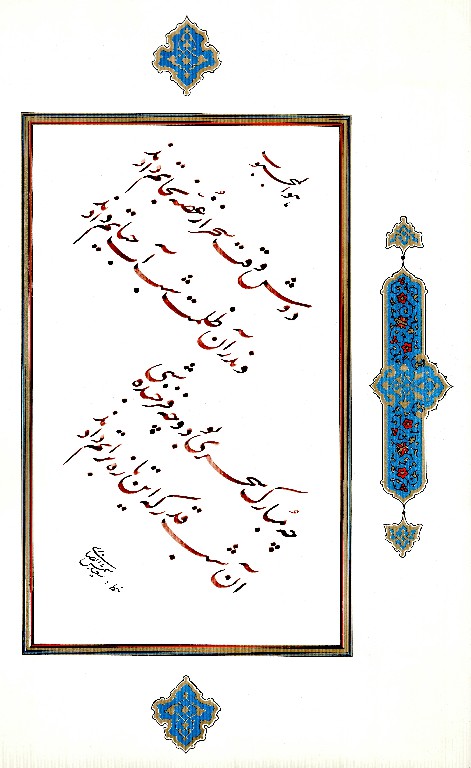 هو المحبوب
دوش وقت سحر از غصه نجاتم دادند
وندر آن ظلمت شب آب حیاتم دادند
چه مبارک سحری بود و چه فرخنده شبی
آن شب قدر که این تازه براتم دادند